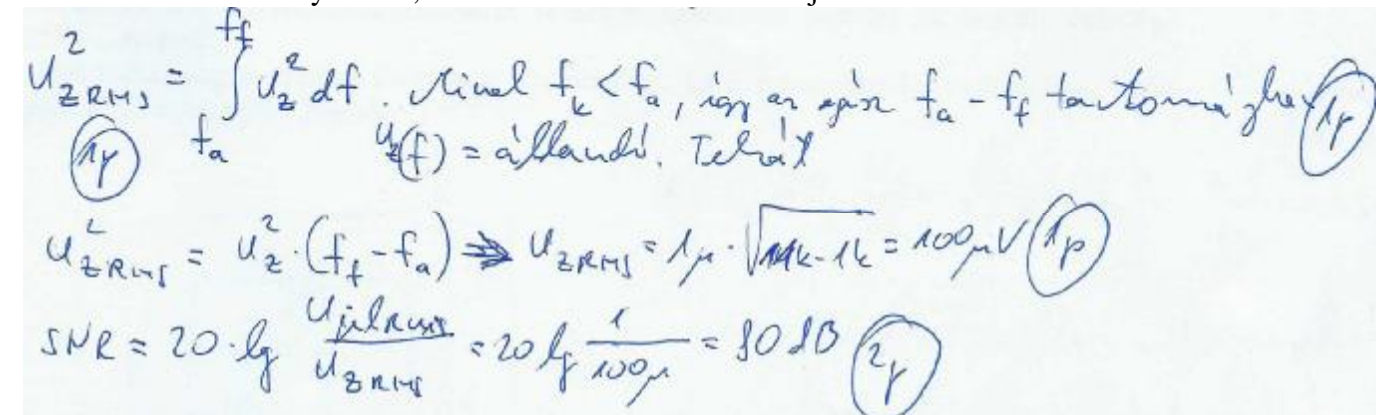 U²_ZRMS = ∫_{f_a}^{f_f} u_z² df. Mivel f_k < f_a, így az egész f_a - f_f tartományban (1p)
(1p) u_z(f) = állandó. Tehát
U²_ZRMS = u_z² · (f_f - f_a) ⇒ U_ZRMS = 1μ · √(11k-1k) = 100μV (1p)
SNR = 20·lg U_jelRMS/U_ZRMS = 20 lg 1/100μ = 80 dB (2p)